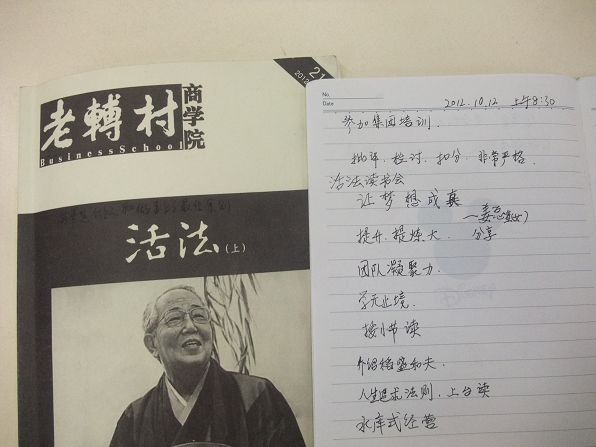 老轉村
商学院
BusinessSchool
21
2012
活法(上)
No.
Date
2012.10.12 上午8:30
参加集团培训.
批评、检讨、扣分、非常严格.
活法读书会
让梦想成真
提升、提炼大. 分享
团队凝聚力.
学无止境.
按小节读
介绍稻盛和夫.
人生追求法则. 上台读
水库式经营